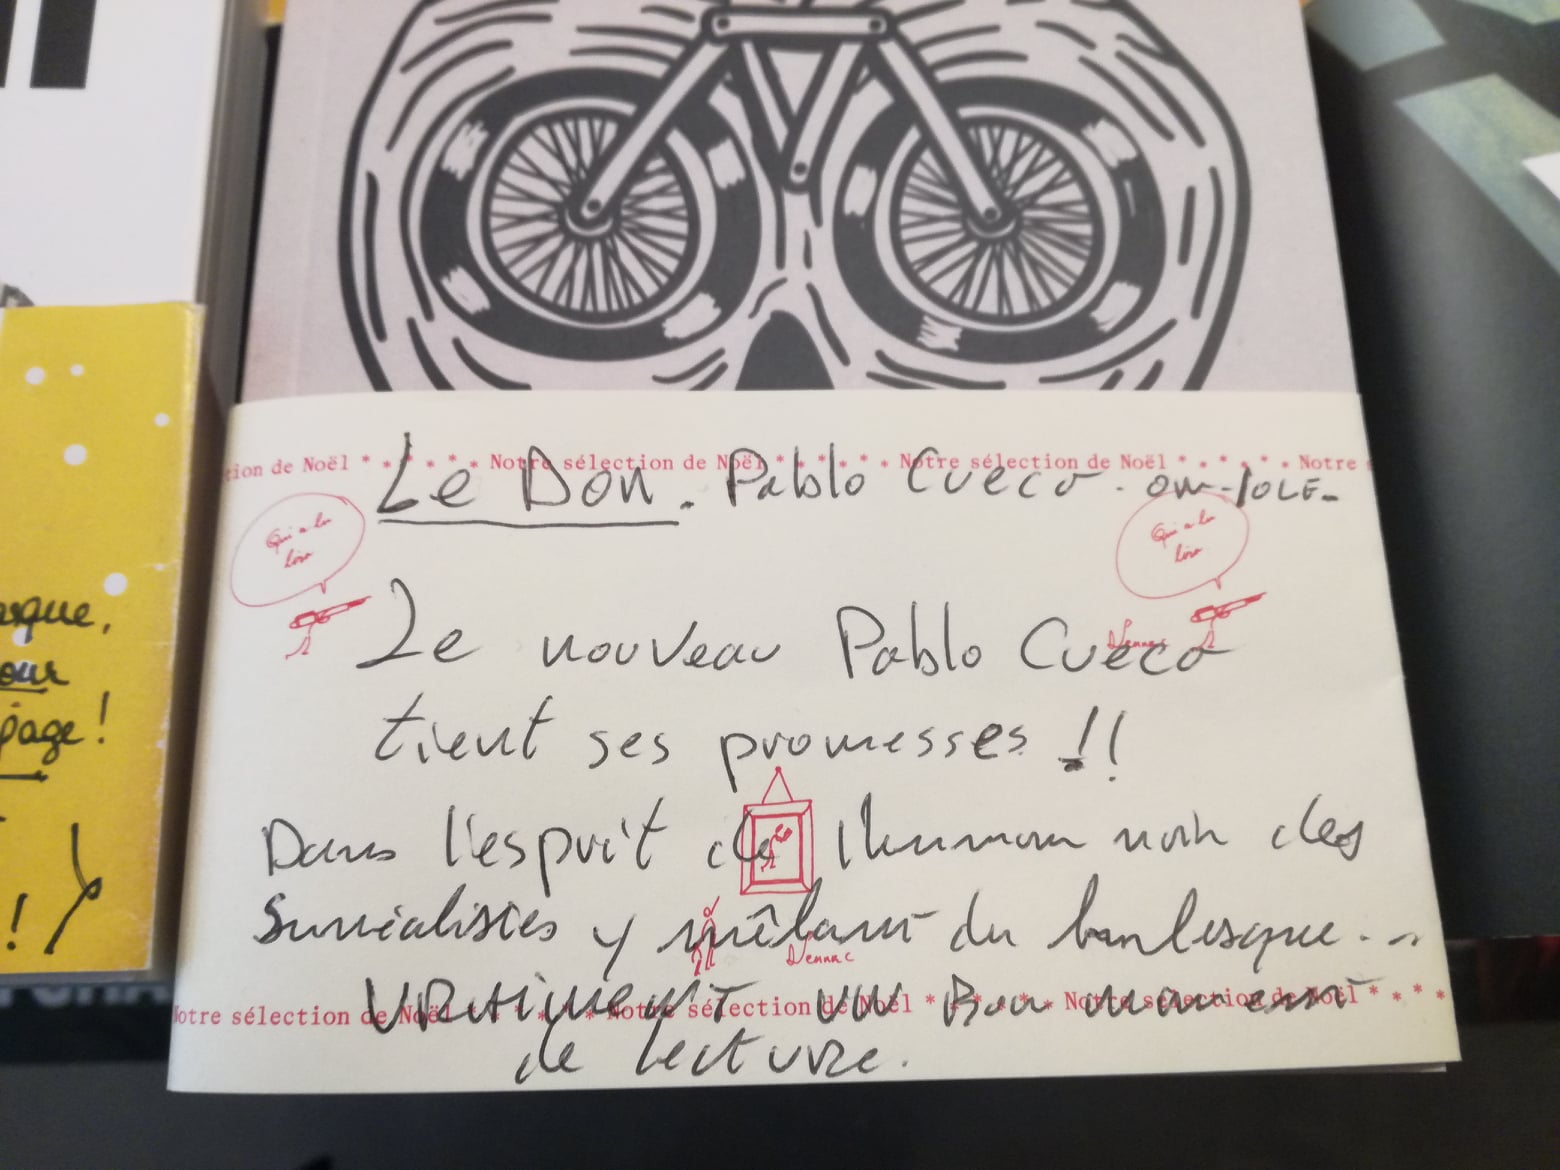 tion de Noël * * * * * * Notre sélection de Noël * * * * * * Notre sélection de Noël * * * * * * Notre
Le Don. Pablo Cueco.
Qui a lu
lira
Qui a lu
lira
Le nouveau Pablo Cueco
tient ses promesses !!
Dans l'esprit de l'humour noir des
surréalistes y mêlant du burlesque...
Vraiment un Bon moment
de lecture.
Notre sélection de Noël * * * * * * Notre sélection de Noël * * * * * * Notre sélection de Noël * * * *
our
page!
!